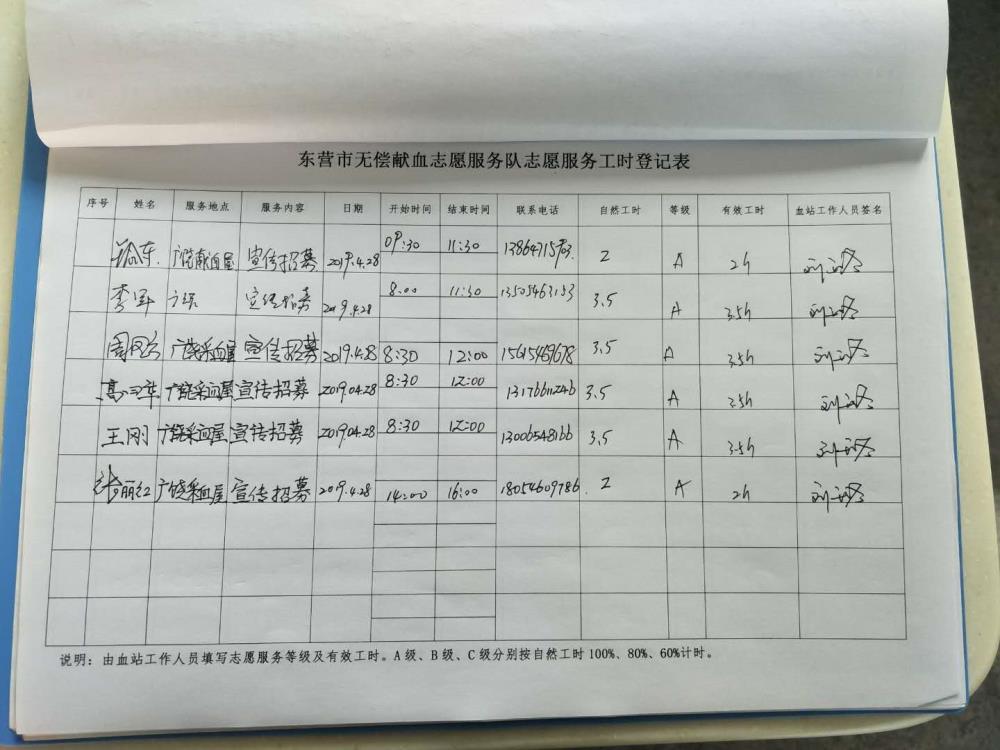 东营市无偿献血志愿服务队志愿服务工时登记表
序号 姓名 服务地点 服务内容 日期 开始时间 结束时间 联系电话 自然工时 等级 有效工时 血站工作人员签名
广饶献血屋 宣传招募 2019.4.28 09:30 11:30 2 A 2h
李军 宣传招募 2019.4.28 8:00 11:30 13505463153 3.5 A 3.5h
广饶采血屋 宣传招募 2019.4.28 8:30 12:00 15615469678 3.5 A 3.5h
广饶采血屋 宣传招募 2019.04.28 8:30 12:00 13176611246 3.5 A 3.5h
王刚 广饶采血屋 宣传招募 2019.04.28 8:30 12:00 13006548166 3.5 A 3.5h
张丽红 广饶采血屋 宣传招募 2019.4.28 14:00 16:00 18054609786 2 A 2h
说明:由血站工作人员填写志愿服务等级及有效工时。A级、B级、C级分别按自然工时100%、80%、60%计时。